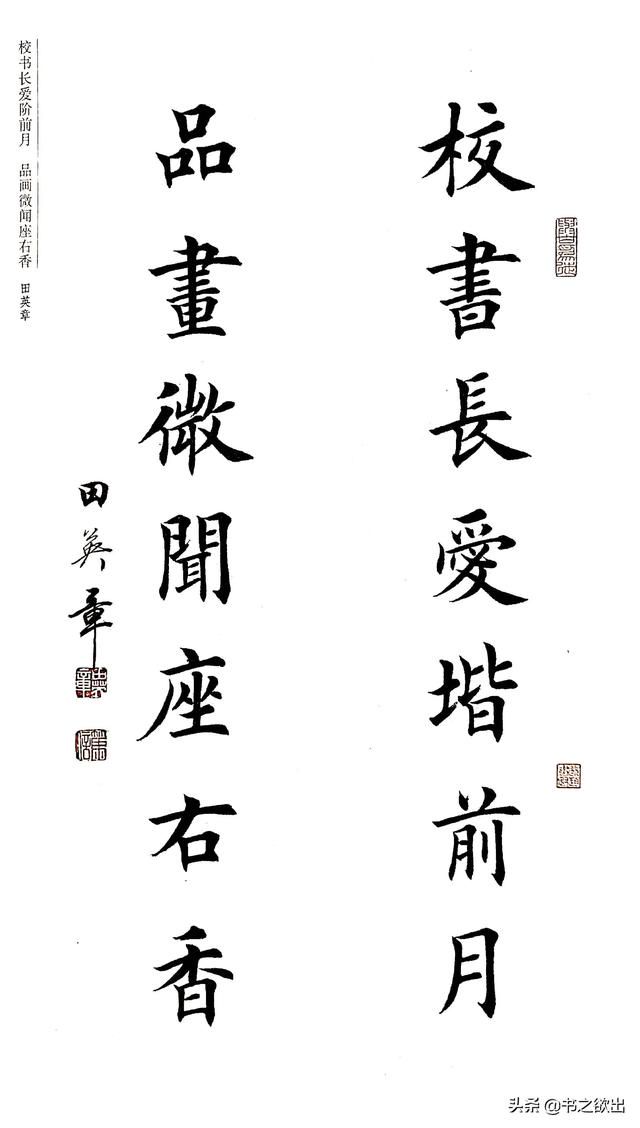 校書長愛堦前月
品畫微聞座右香
田英章
校书长爱阶前月 品画微闻座右香 田英章
头条 @书之欲出